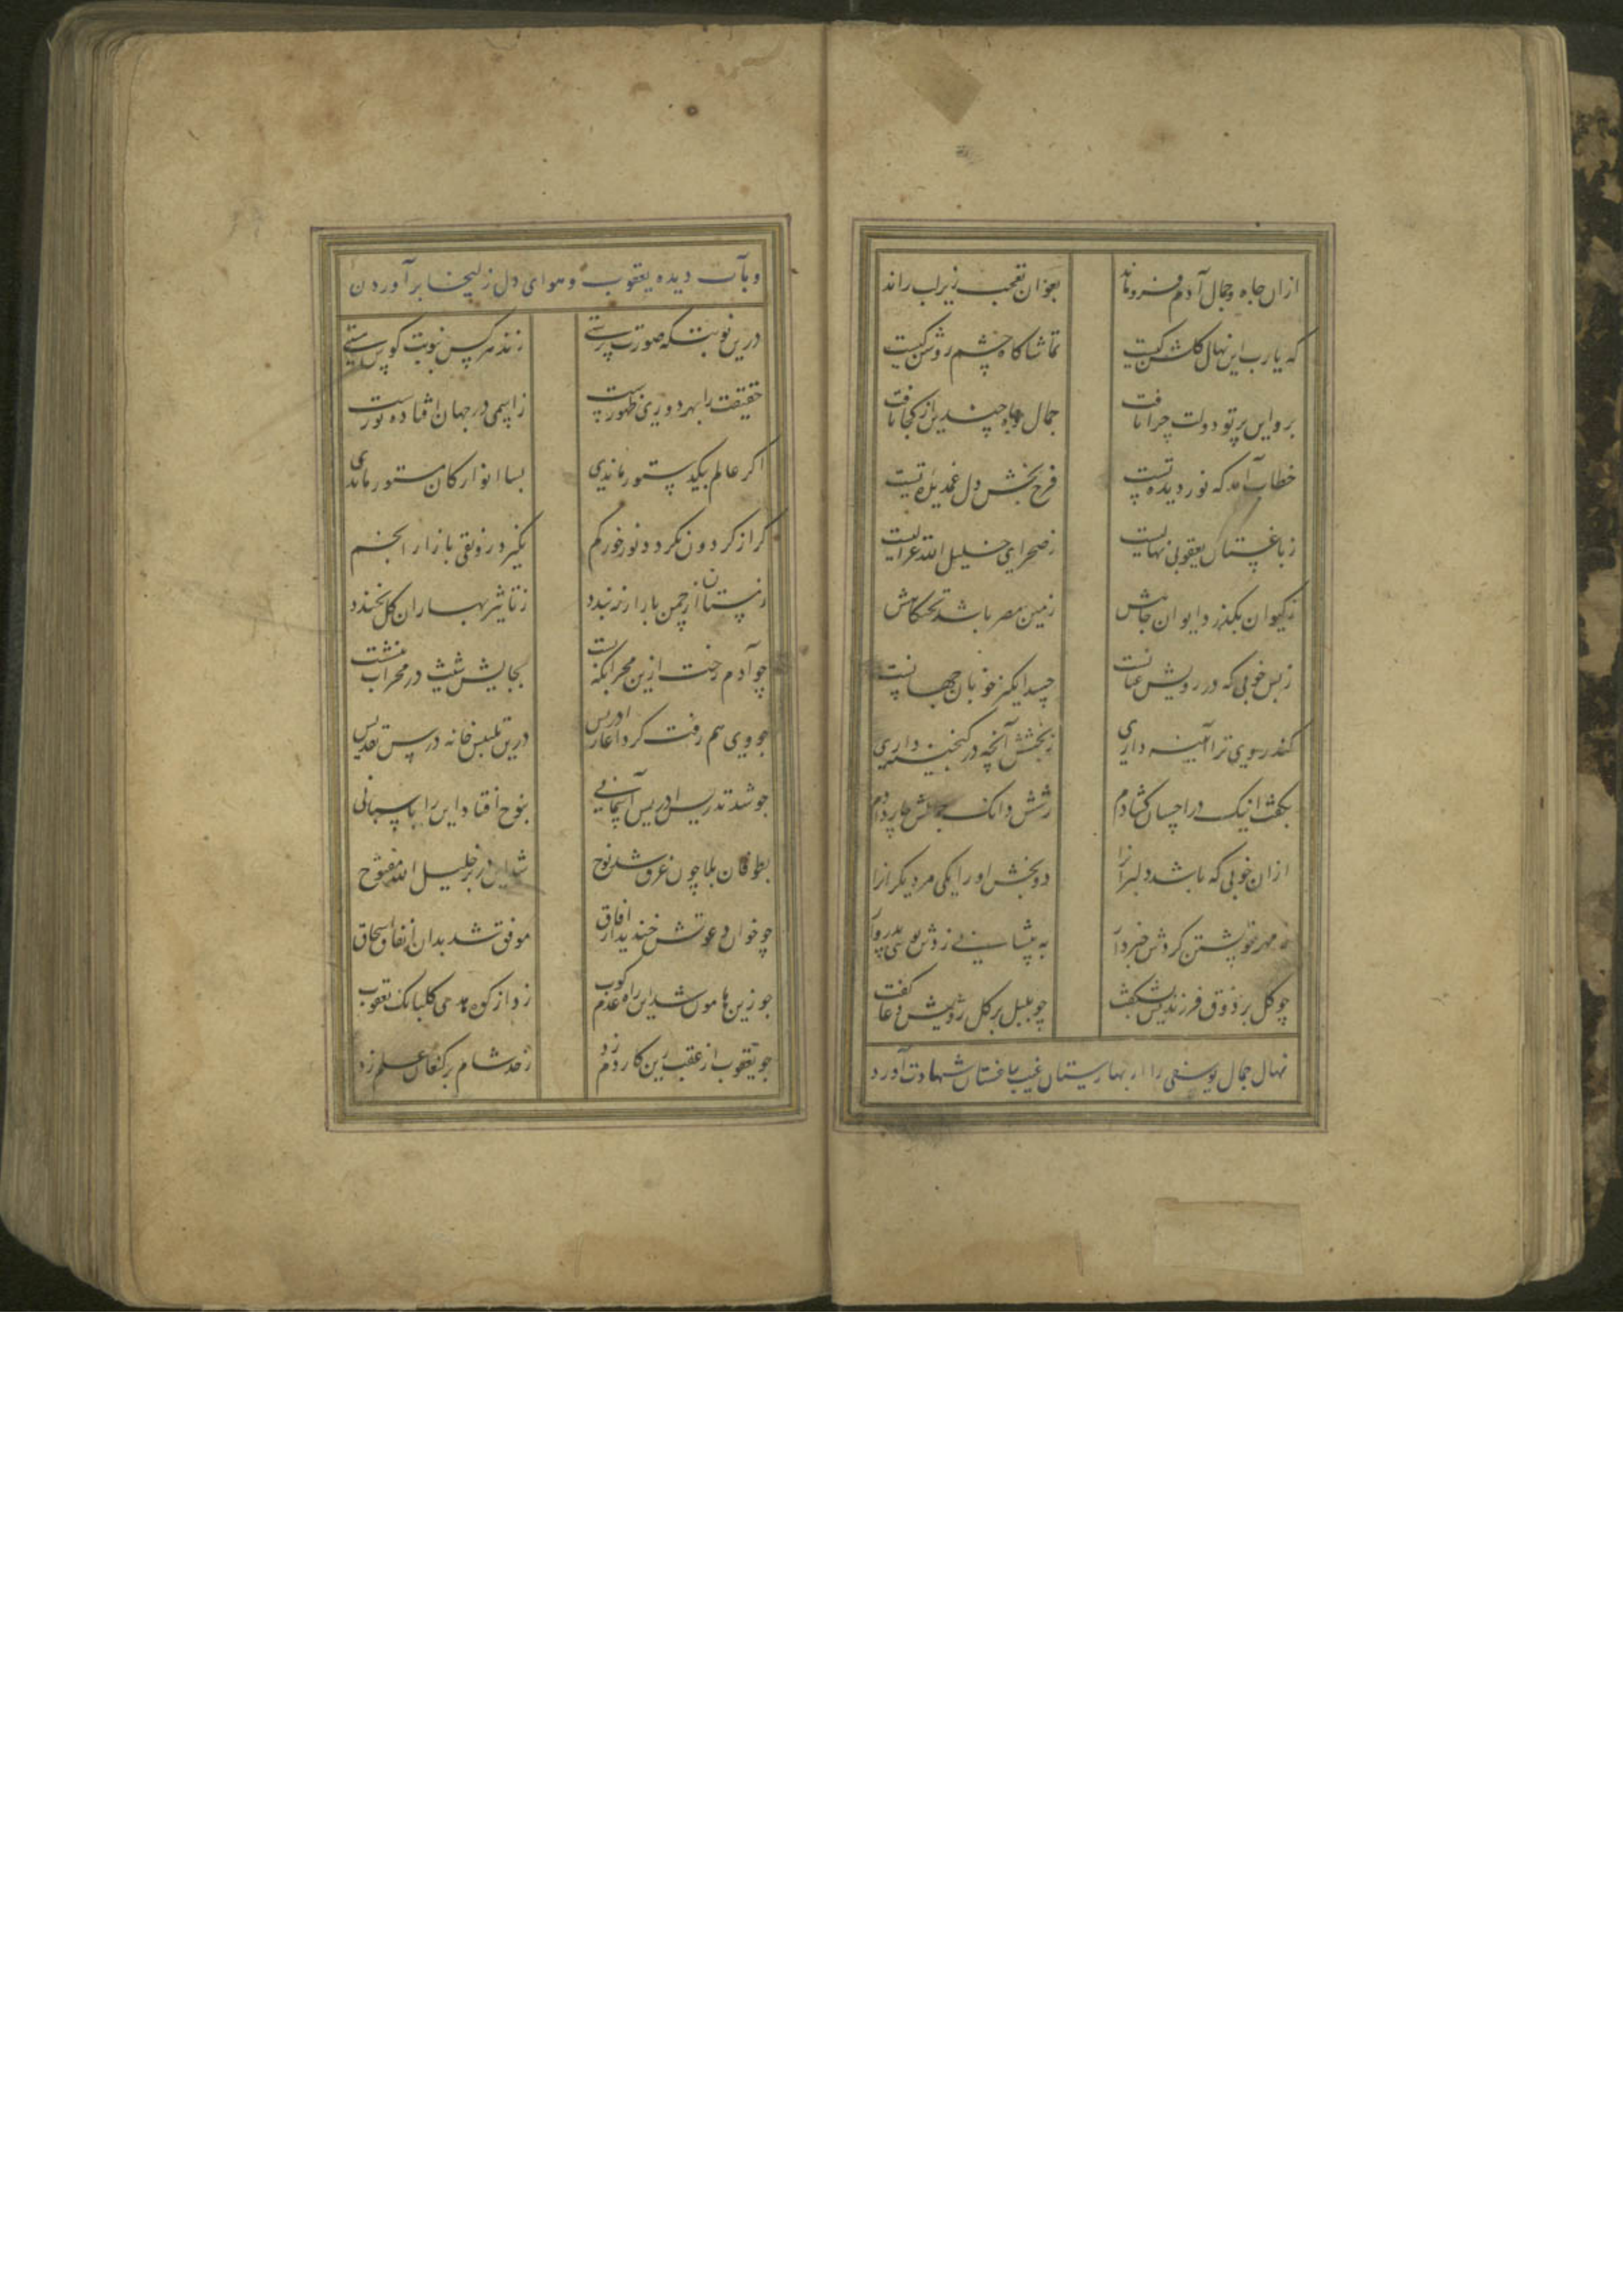 ازان جاه و جمال آدم فروماند بعنوان تعجب زیر لب راند
که یارب این نهال گلشن کیست تماشاگاه چشم روشن کیست
برو این پرتو دولت چرا تافت جمال و جاه چندین از کجا یافت
خطاب آمد که نور دیده تست فرح بخش دل غمدیده تست
ز باغستان یعقوبی نهالیست ز صحرای خلیل الله غزالیست
ز کیوان بگذرد ایوان جاهش زمین مصر باشد تختگاهش
ز بس خوبی که در رویش عیانست حسد انگیز خوبان جهانست
کند روی ترا آیینه داری ببخشش آنچه در گنجینه داری
بگفت اینک در احسان گشادم ز شش دانگ جمالش چار دادم
ازان خوبی که باشد دلبرانرا دو بخش او را یکی مر دیگرانرا
به مهر خویشتن کردش خبردار به پیشانی زدش بوسی پدروار
چو گل بر ذوق فرزندیش بشکفت چو بلبل بر گل رویش دعا گفت
نهال جمال یوسفی را از بهارستان غیب بباغستان شهادت آورد
و بآب دیده یعقوب و هوای دل زلیخا برآوردن
درین نوبتگه صورت پرستی زند هر کس بنوبت کوس هستی
حقیقت را بهر دوری ظهوریست ز اسمی در جهان افتاده نوریست
اگر عالم بیک دستور ماندی بسا انوار کان مستور ماندی
گر از گردون نگردد نور خور گم نگیرد رونقی بازار انجم
زمستان از چمن بار ار نبندد ز تاثیر بهاران گل نخندد
چو آدم رخت ازین محرابگه بست بجایش شیث در محراب بنشست
چو وی هم رفت کرد آغاز ادریس درین تلبیس خانه درس تقدیس
چو شد تدریس ادریس آسمانی بنوح افتاد این را پاسبانی
بطوفان بلا چون غرق شد نوح شد این در بر خلیل الله مفتوح
چو خوان دعوتش چیدند از آفاق موفق شد بدان انفاق اسحاق
چو زین هامون شد این راه عدم کوب زد از کوه هدی گلبانگ یعقوب
چو یعقوب از عقب زین کار دم زد ز حد شام بر کنعان علم زد